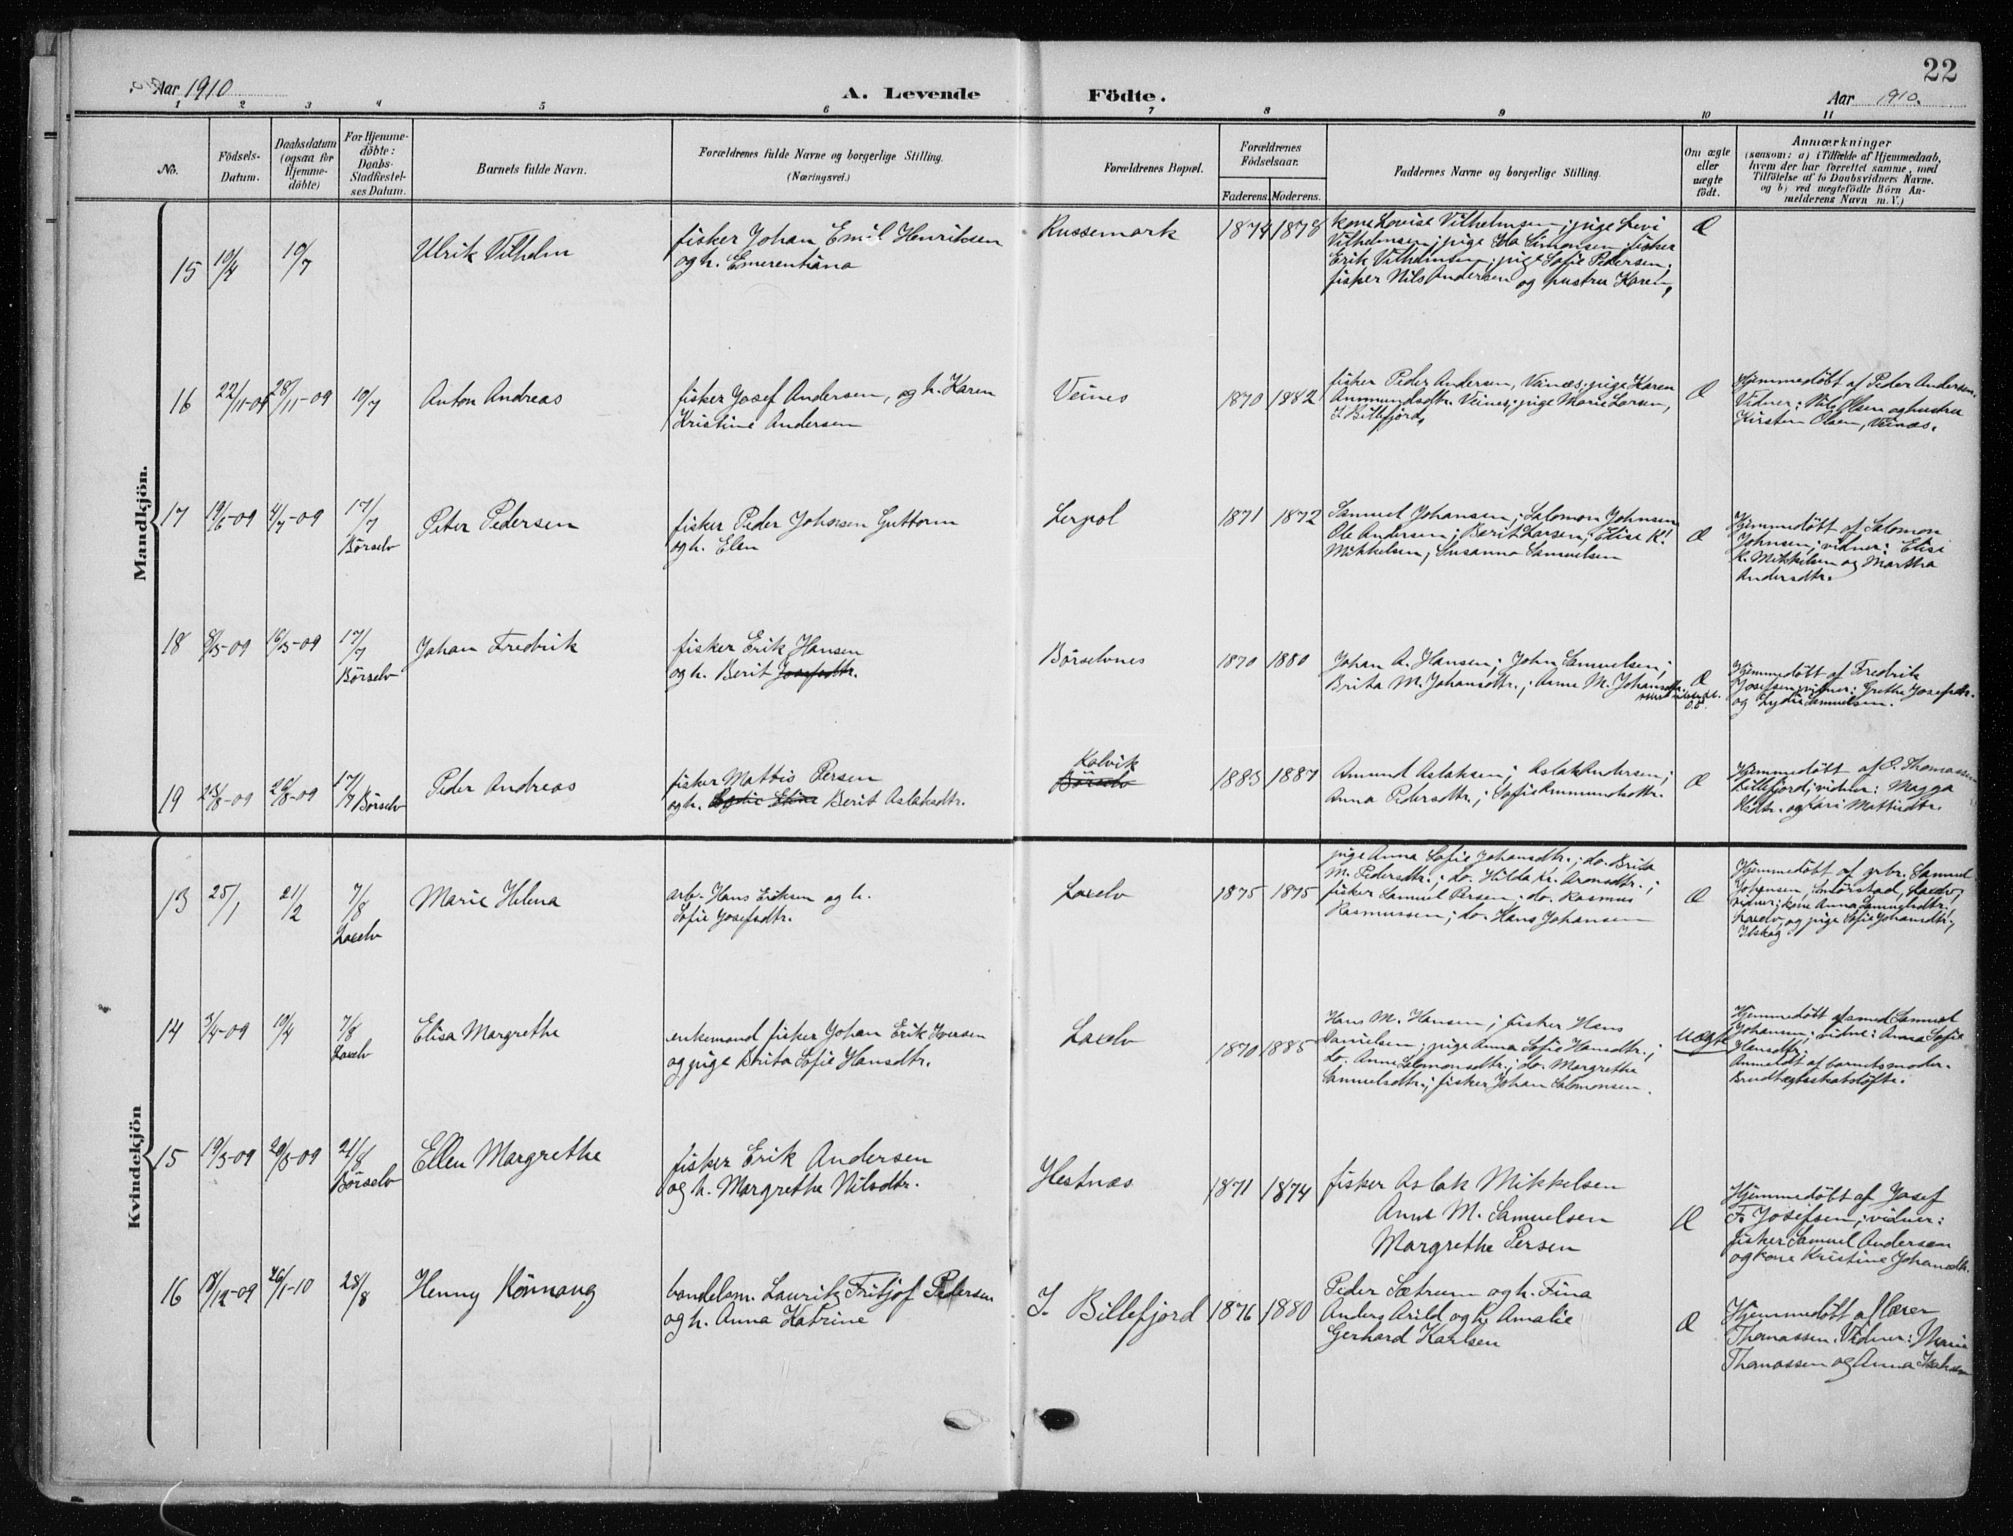 Aar 1910
A. Levende
Födte.
Aar 1910.
22
1 2 3 4 5 6 7 8 9 10 11
No.
Födsels-
Datum.
Daabsdatum
(ogsaa for
Hjemme-
döbte)
For Hjemme-
döbte:
Daabs-
Stadfæstel-
ses Datum.
Barnets fulde Navn.
Forældrenes fulde Navne og borgerlige Stilling.
(Næringsvei.)
Forældrenes Bopæl.
Forældrenes
Födselsaar.
Faderens. Moderens.
Faddernes Navne og borgerlige Stilling.
Om ægte
eller
uægte
födt.
Anmærkninger
(saasom: a) i Tilfælde af Hjemmedaab,
hvem der har forrettet samme, med
Tilföielse af to Daabsvidners Navne.
og b) ved uægtefödte Börn An-
melderens Navn m. V.)
Mandkjön.
15
10/4
10/7
Ulrik Vilhelm
fisker Johan Emil Henriksen
og h. Emerentiana
Russemark
1874
1878
kone Lovise Vilhelmsen; pige Levi
Vilhelmsen; pige Ida Simonsen; fisker
Erik Vilhelmsen; pige Sofie Pedersen;
fisker Nils Andersen og hustru Karen,
Æ
16
22/11-09
28/11-09
10/7
Anton Andreas
fisker Josef Andersen, og h. Karen
Kristine Andersen
Veines
1870
1882
fisker Peder Andersen, Veines; pige Karen
Ammundsdtr. Veines; pige Marie Larsen,
I. Billefjord,
Æ
Hjemmedöbt af Peder Andersen.
Vidner: Nils Olsen og hustru
Kirsten Olsen, Veines.
17
19/6-09
4/7-09
17/7
Börselv
Peter Pedersen
fisker Peder Johnsen Guttorm
og h. Elen
Lerpol
1871
1872
Samuel Johansen; Salomon Johnsen
Ole Andersen; Berit Larsen; Elise K.
Mikkelsen, Susanna Samuelsen
Æ
Hjemmedöbt af Salomon
Johnsen; vidner: Elise
K. Mikkelsen og Martha
Andersdtr.
18
8/5-09
16/5-09
17/7
Börselv
Johan Fredrik
fisker Erik Hansen
og h. Berit Josefsdtr.
Börselvnes
1870
1880
Johan A. Hansen; John Samuelsen;
Brita M. Johansdtr.; Anne M. Johansdtr.
Æ
Hjemmedöbt af Fredrik
Josefsen; vidner: Grethe Josefsdtr.
og Lydie Samuelsen.
19
23/8-09
29/8-09
17/7 Börselv
Peder Andreas
fisker Mattis Persen
og h. Lydie Eline Berit Aslaksdtr.
Kolvik
Börselv
1883
1887
Amund Aslaksen; Aslak Andersen;
Anna Pedersdtr.; Sofie Ammundsdtr.
Æ
Hjemmedöbt af P. Thomassen
Billefjord; vidner: Magga
Olsdtr. og Kari Mattisdtr.
Kvindekjön
13
25/1
21/2
7/8
Laxelv
Marie Helena
arb. Hans Eriksen og h.
Sofie Josefsdtr.
Laxelv
1875
1875
pige Anna Sofie Johansdtr.; do. Brita
M. Pedersdtr.; do. Hilda K. Aronsdtr.;
fisker Samuel Persen; do. Rasmus
Rasmussen; do. Hans Johansen
Æ
Hjemmedöbt af arb. Samuel
Johansen, Laxelv;
vidner; kone Anna Samuelsdtr.
Laxelv, og pige Sofie Johansdtr.,
14
3/4-09
19/4
7/8
Laxelv
Elisa Margrethe
enkemand fisker Johan Erik Iversen
og pige Brita Sofie Hansdtr.
Laxelv
1870
1885
Hans M. Hansen; fisker Hans
Danielsen; pige Anna Sofie Hansdtr.;
do. Anne Salomonsdtr.; do. Margrethe
Samuelsdtr.; fisker Johan Salomonsen.
uægte
Hjemmedöbt af smed Samuel
Johansen; vidne: Anna Sofie
Hansdtr.;
Anmeldt af barnets moder.
15
19/3-09
29/3-09
21/8
Börselv
Ellen Margrethe
fisker Erik Andersen
og h. Margrethe Nilsdtr.
Hestnæs
1871
1874
fisker Aslak Mikkelsen
Anne M. Samuelsen
Margrethe Persen
Æ
Hjemmedöbt af Josef
F. Josefsen; vidner:
fisker Samuel Andersen
og kone Kristine Johansdtr.
16
18/12-09
26/1-10
28/8
Henny Rönnaug
handelsm. Lauritz Fritjof Pedersen
og h. Anna Katrine
I. Billefjord
1876
1880
Peder Sætrum og h. Fina
Anders Arild og h. Amalie
Gerhard Karlsen
Æ
Hjemmedöbt af lærer
Thomassen. Vidner: Marie
Thomassen og Anna Isaksen